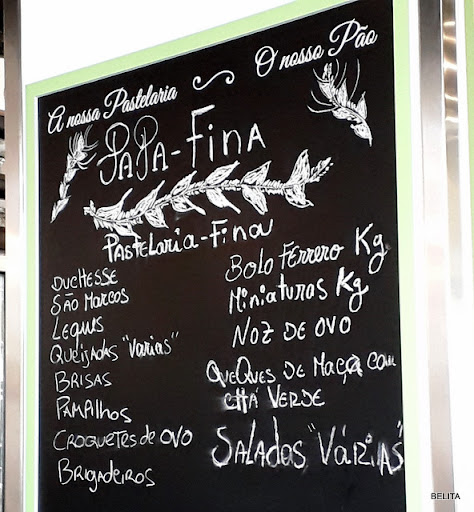 A nossa Pastelaria
O nosso Pão
PAPA-FINA
PASTELARIA-FINA
DUCHESSE
SÃO MARCOS
LEQUES
QUEIJADAS "VARIAS"
BRISAS
PAMPILHOS
CROQUETES de OVO
BRIGADEIROS
BOLO FERRERO Kg
MINIATURAS Kg
NOZ DE OVO
QUEQUES DE MAÇA COM
CHÁ VERDE
SALADAS "VÁRIAS"
BELITA